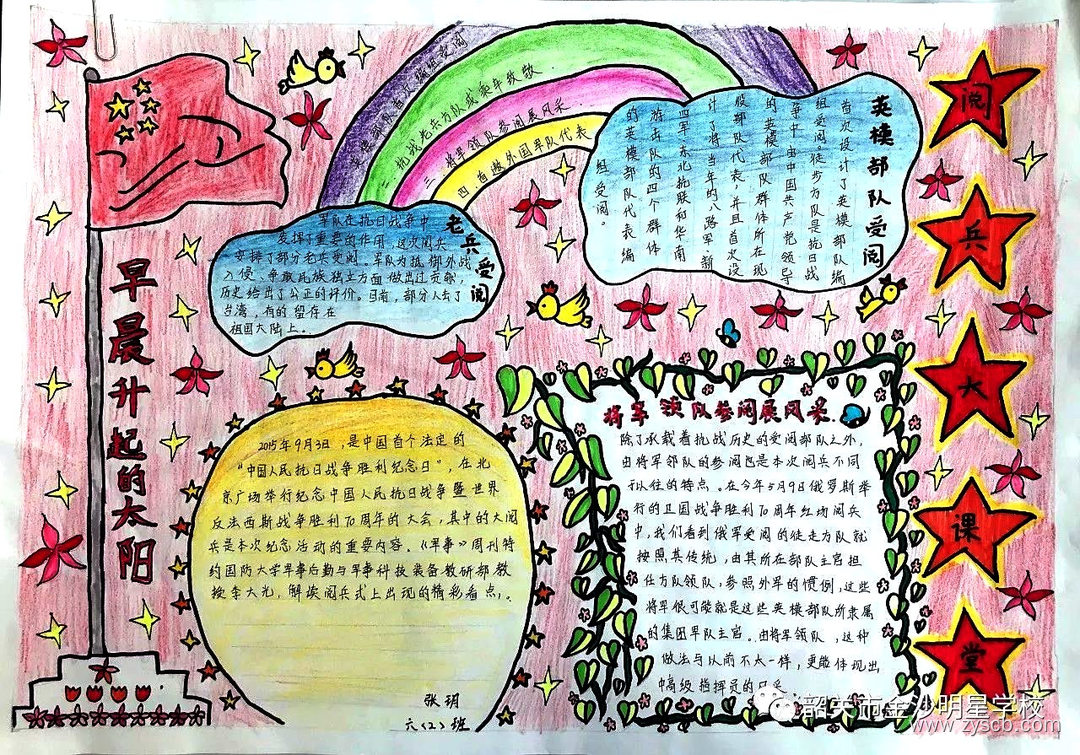 阅兵大课堂
早晨升起的太阳
一 英模部队首次编组受阅
二 抗战老兵方队或乘车致敬
三 将军领队参阅展风采
四 首邀外国军队代表
英模部队受阅
首次设计了英模部队编
组受阅徒步方队是抗日战
争中由中国共产党领导
的英模部队群体所在现
役部队代表,并且首次设
计了将当年的八路军、新
四军、东北抗联和华南
游击队的四个群体
的英模部队代表编
组受阅。
老兵受阅
军队在抗日战争中
发挥了重要的作用,这次阅兵
安排了部分老兵受阅。军队为抵御外战
入侵、争取民族独立方面做出过贡献;
历史给出了公正的评价。目前,部分人去了
台湾,有的留存在
祖国大陆上。
2015年9月3日,是中国首个法定的
“中国人民抗日战争胜利纪念日”,在北
京广场举行纪念中国人民抗日战争暨世界
反法西斯战争胜利70周年的大会,其中的大阅
兵是本次纪念活动的重要内容。《军事》周刊特
约国防大学军事后勤与军事科技装备教研部教
授李大光,解读阅兵式上出现的精彩看点。
张玥
六〈2〉班
将军领队参阅展风采.
除了承载着抗战历史的受阅部队之外,
由将军领队的参阅也是本次阅兵不同
于以往的特点。在今年5月9日俄罗斯举
行的卫国战争胜利70周年红场阅兵
中,我们看到俄军受阅的徒走方队就
按照其传统,由其所在部队主官担
任方队领队,参照外军的惯例,这些
将军很可能就是这些英模部队所隶属
的集团军队主官。由将军领队,这种
做法与以前不太一样,更能体现出
中高级指挥员的风采
韶关市金沙明星学校
www.zyscb.com